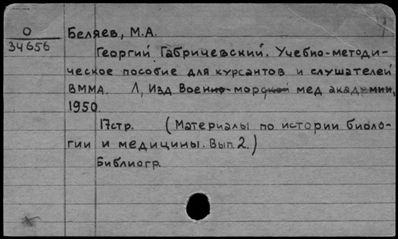 О
34656
Беляев, М.А.
Георгий Габричевский. Учебно-методи-
ческое пособие для курсантов и слушателей
ВММА. Л, Изд Военно-морской мед академии,
1950.
17стр. (Материалы по истории биоло-
гии и медицины. Вып 2.)
Библиогр.